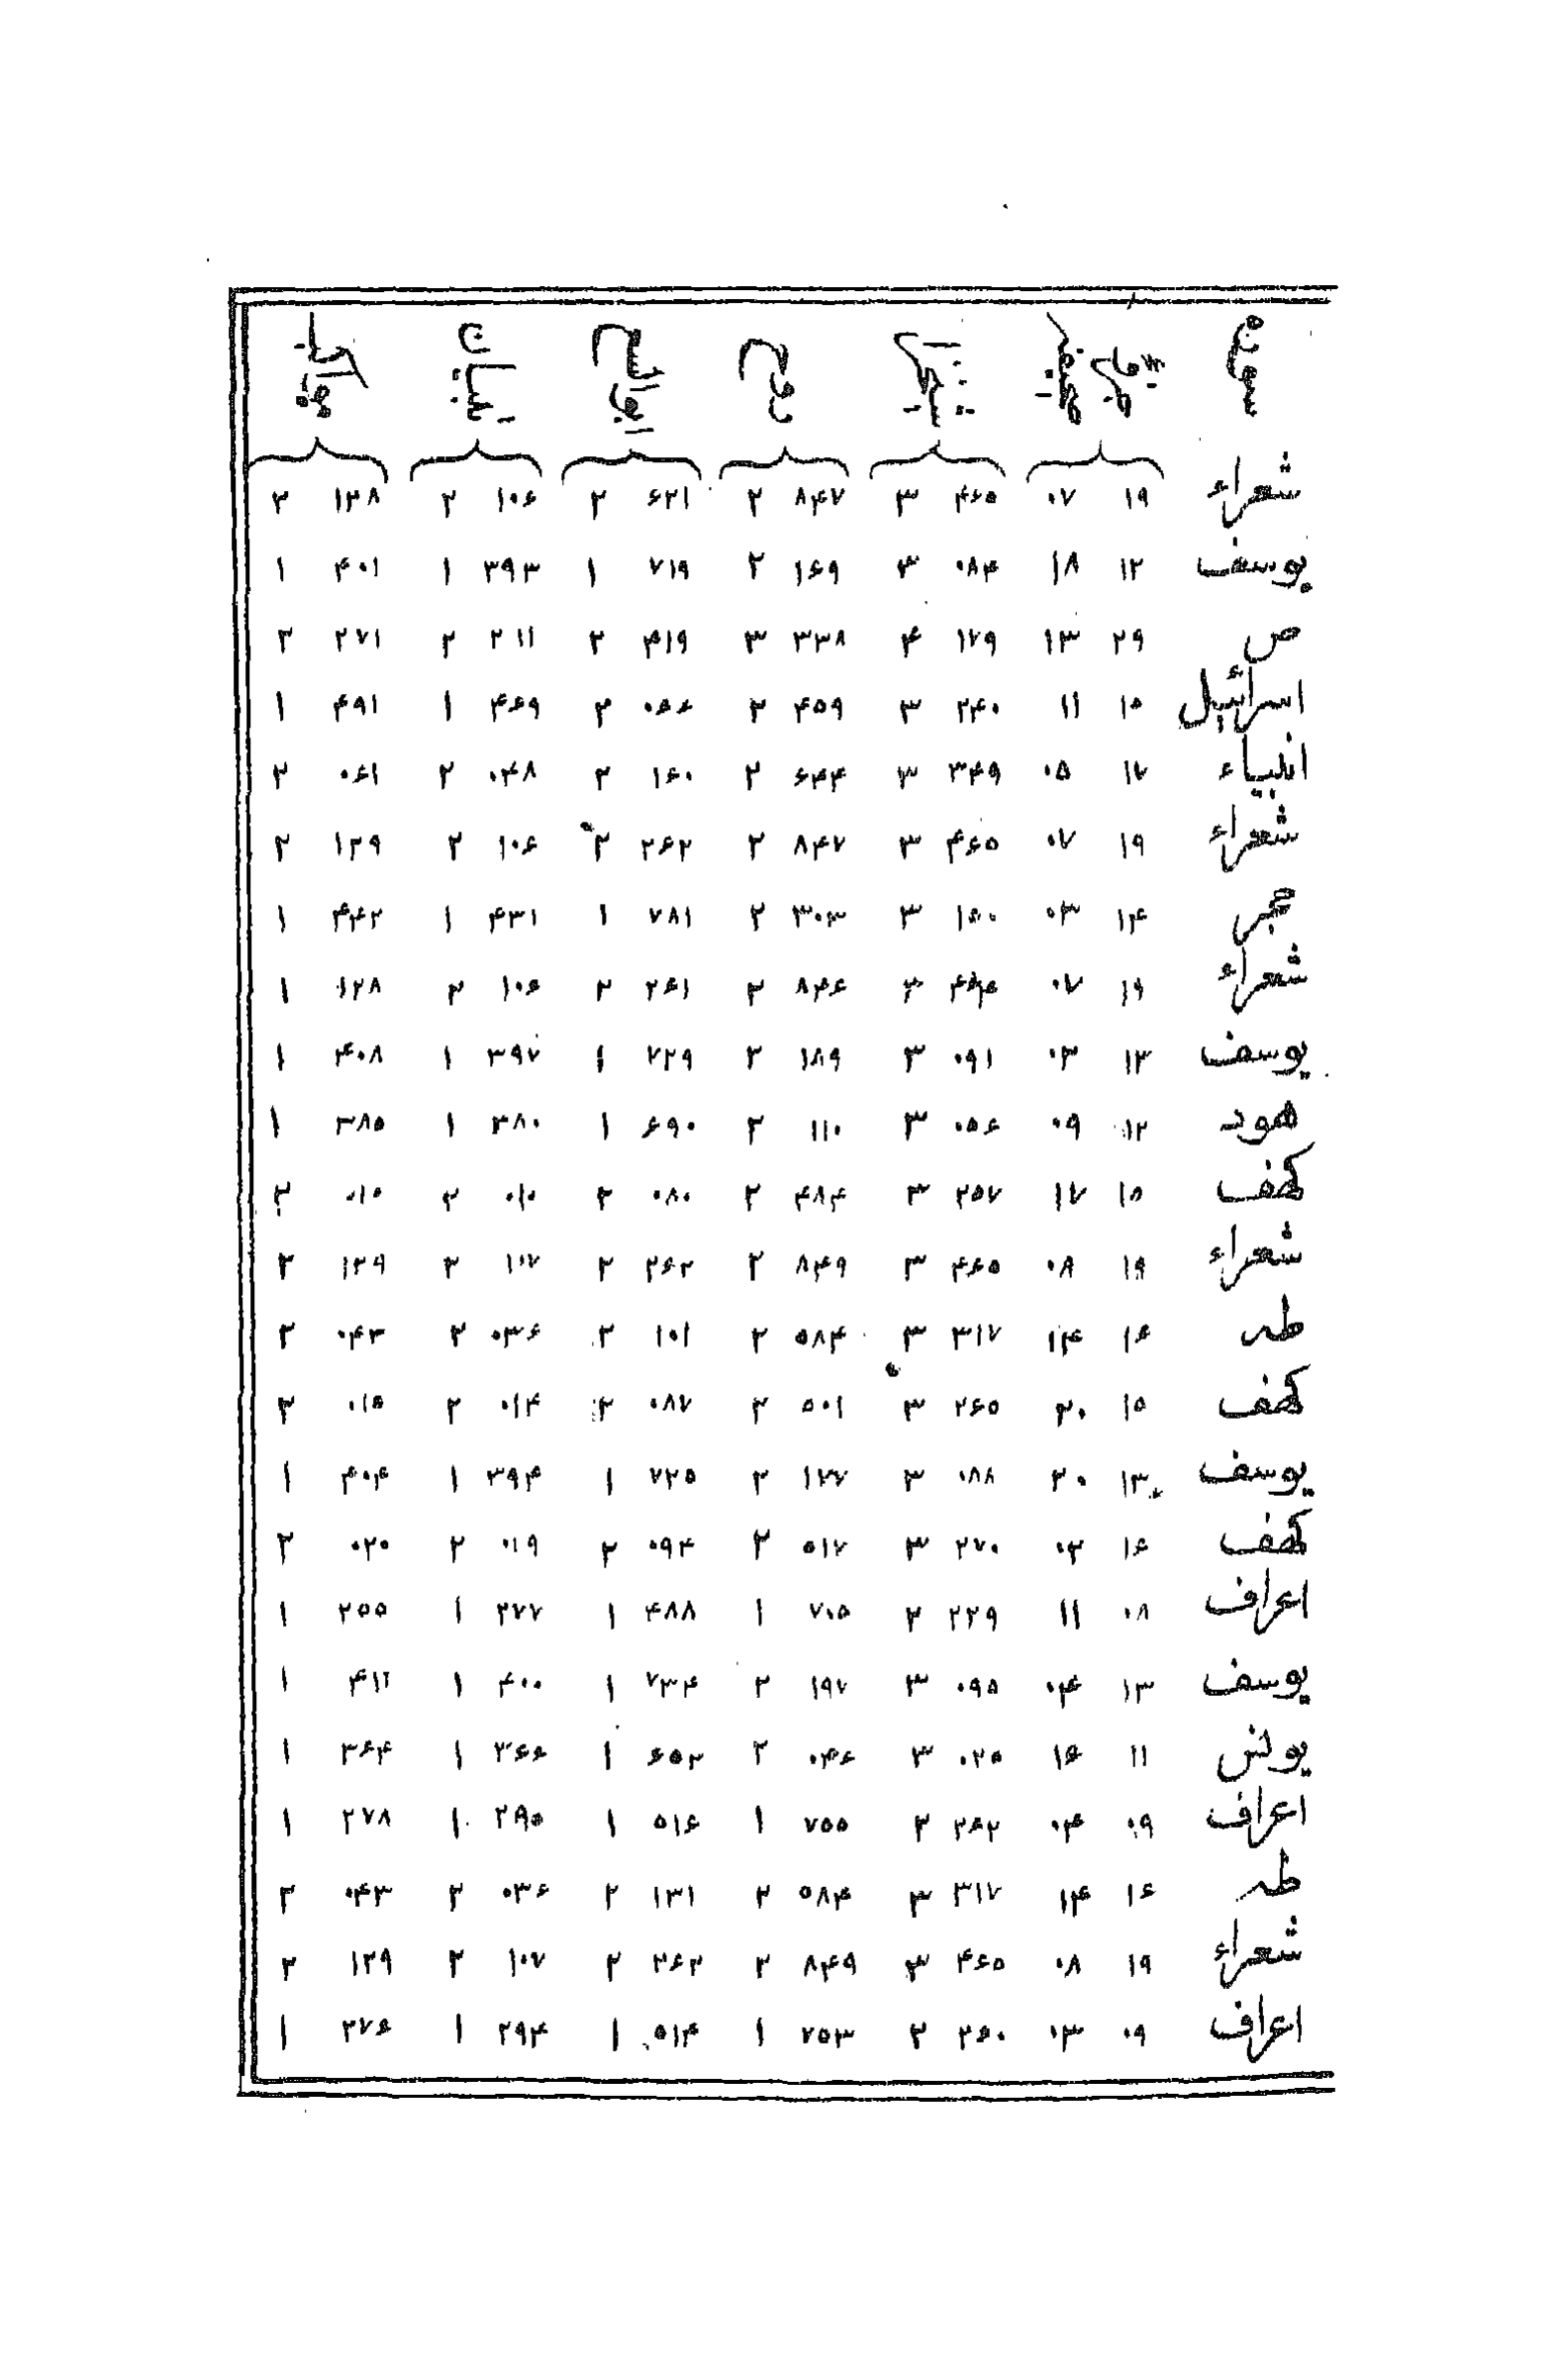 سوره
شعراء ۱۹ ۰۷ ۴۶۵ ۳ ۸۴۷ ۲ ۶۲۱ ۲ ۱۰۶ ۲ ۱۳۸ ۲
یوسف ۱۲ ۱۸ ۰۸۴ ۳ ۱۶۹ ۲ ۷۱۹ ۱ ۳۹۳ ۱ ۴۰۱ ۱
ص ۲۹ ۱۳ ۱۷۹ ۴ ۳۳۸ ۳ ۴۱۹ ۲ ۲۱۱ ۲ ۲۷۱ ۲
اسرائیل ۱۵ ۱۱ ۲۴۰ ۳ ۴۵۹ ۲ ۰۶۶ ۲ ۴۶۹ ۱ ۴۹۱ ۱
انبیاء ۱۷ ۰۵ ۳۴۹ ۳ ۶۴۴ ۲ ۱۶۰ ۲ ۰۴۸ ۲ ۰۶۱ ۲
شعراء ۱۹ ۰۷ ۴۶۵ ۳ ۸۴۷ ۲ ۲۶۲ ۲ ۱۰۶ ۲ ۱۲۹ ۲
حجر ۱۴ ۰۳ ۱۵۰ ۳ ۳۰۳ ۲ ۷۸۱ ۱ ۴۳۱ ۱ ۴۴۲ ۱
شعراء ۱۹ ۰۷ ۳ ۸۴۶ ۲ ۲۶۱ ۲ ۱۰۶ ۲ ۱۲۸ ۱
یوسف ۱۳ ۰۳ ۰۹۱ ۳ ۱۸۹ ۲ ۷۲۹ ۱ ۳۹۷ ۱ ۴۰۸ ۱
هود ۱۲ ۰۹ ۰۵۶ ۳ ۱۱۰ ۲ ۶۹۰ ۱ ۳۸۰ ۱ ۳۸۵ ۱
کهف ۱۵ ۱۷ ۲۵۷ ۳ ۴۸۴ ۲ ۰۸۰ ۲ ۰۱۰ ۲ ۰۱۰ ۲
شعراء ۱۹ ۰۸ ۴۶۵ ۳ ۸۴۹ ۲ ۲۶۲ ۲ ۱۰۷ ۲ ۱۲۹ ۲
طه ۱۶ ۱۴ ۳۱۷ ۳ ۵۸۴ ۲ ۱۰۱ ۲ ۰۳۶ ۲ ۰۴۳ ۲
کهف ۱۵ ۲۰ ۲۶۵ ۳ ۵۰۱ ۲ ۰۸۷ ۲ ۰۱۴ ۲ ۰۱۵ ۲
یوسف ۱۳ ۲۰ ۰۸۸ ۳ ۱۷۷ ۲ ۷۲۵ ۱ ۳۹۴ ۱ ۴۰۴ ۱
کهف ۱۶ ۰۲ ۲۷۰ ۳ ۵۱۷ ۲ ۰۹۴ ۲ ۰۱۹ ۲ ۰۲۰ ۲
اعراف ۰۸ ۱۱ ۲۲۹ ۲ ۷۰۵ ۱ ۴۸۸ ۱ ۲۷۷ ۱ ۲۵۵ ۱
یوسف ۱۳ ۰۴ ۰۹۵ ۳ ۱۹۷ ۲ ۷۳۴ ۱ ۴۰۰ ۱ ۴۱۲ ۱
یونس ۱۱ ۱۶ ۰۲۵ ۳ ۰۴۶ ۲ ۶۵۲ ۱ ۳۶۶ ۱ ۳۶۴ ۱
اعراف ۰۹ ۰۴ ۲۶۲ ۲ ۷۵۵ ۱ ۵۱۶ ۱ ۲۹۵ ۱ ۲۷۸ ۱
طه ۱۶ ۱۴ ۳۱۷ ۳ ۵۸۴ ۲ ۱۳۱ ۲ ۰۳۶ ۲ ۰۴۳ ۲
شعراء ۱۹ ۰۸ ۴۶۵ ۳ ۸۴۹ ۲ ۲۶۲ ۲ ۱۰۷ ۲ ۱۲۹ ۲
اعراف ۰۹ ۰۳ ۲۶۰ ۲ ۷۵۳ ۱ ۵۱۴ ۱ ۲۹۴ ۱ ۲۷۶ ۱